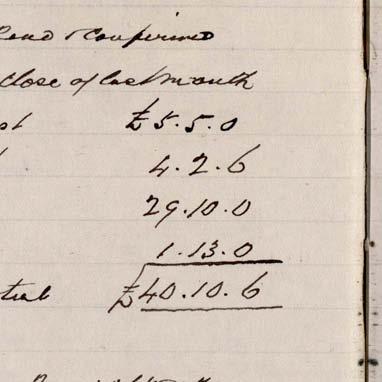 Read & Confirmed
Close of last month
£5.5.0
4.2.6
29.10.0
1.13.0
£40.10.6